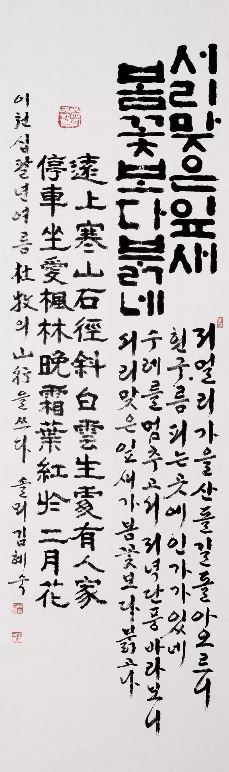 서리맞은잎새
봄꽃보다붉네
저멀리가을산돌길돌아오르니
흰구름피는곳에인가가있네
수레를멈추고서저녁단풍바라보니
서리맞은잎새가봄꽃보다붉고나
遠上寒山石徑斜白雲生處有人家
停車坐愛楓林晩霜葉紅於二月花
이천십팔년여름杜牧의山行을쓰다 솔뫼김혜숙